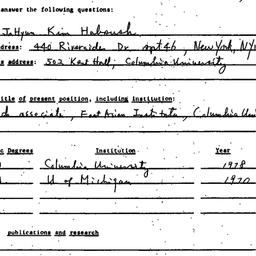 answer the following questions:
JaHyun Kim Haboush
dress: 440 Riverside Dr. Apt 46, New York, NY
s address: 502 Kent Hall, Columbia University
itle of present position, including institution:
ch associate, East Asian Institute, Columbia Uni
c Degrees Institution Year
Columbia University 1978
U of Michigan 1970
publications and research